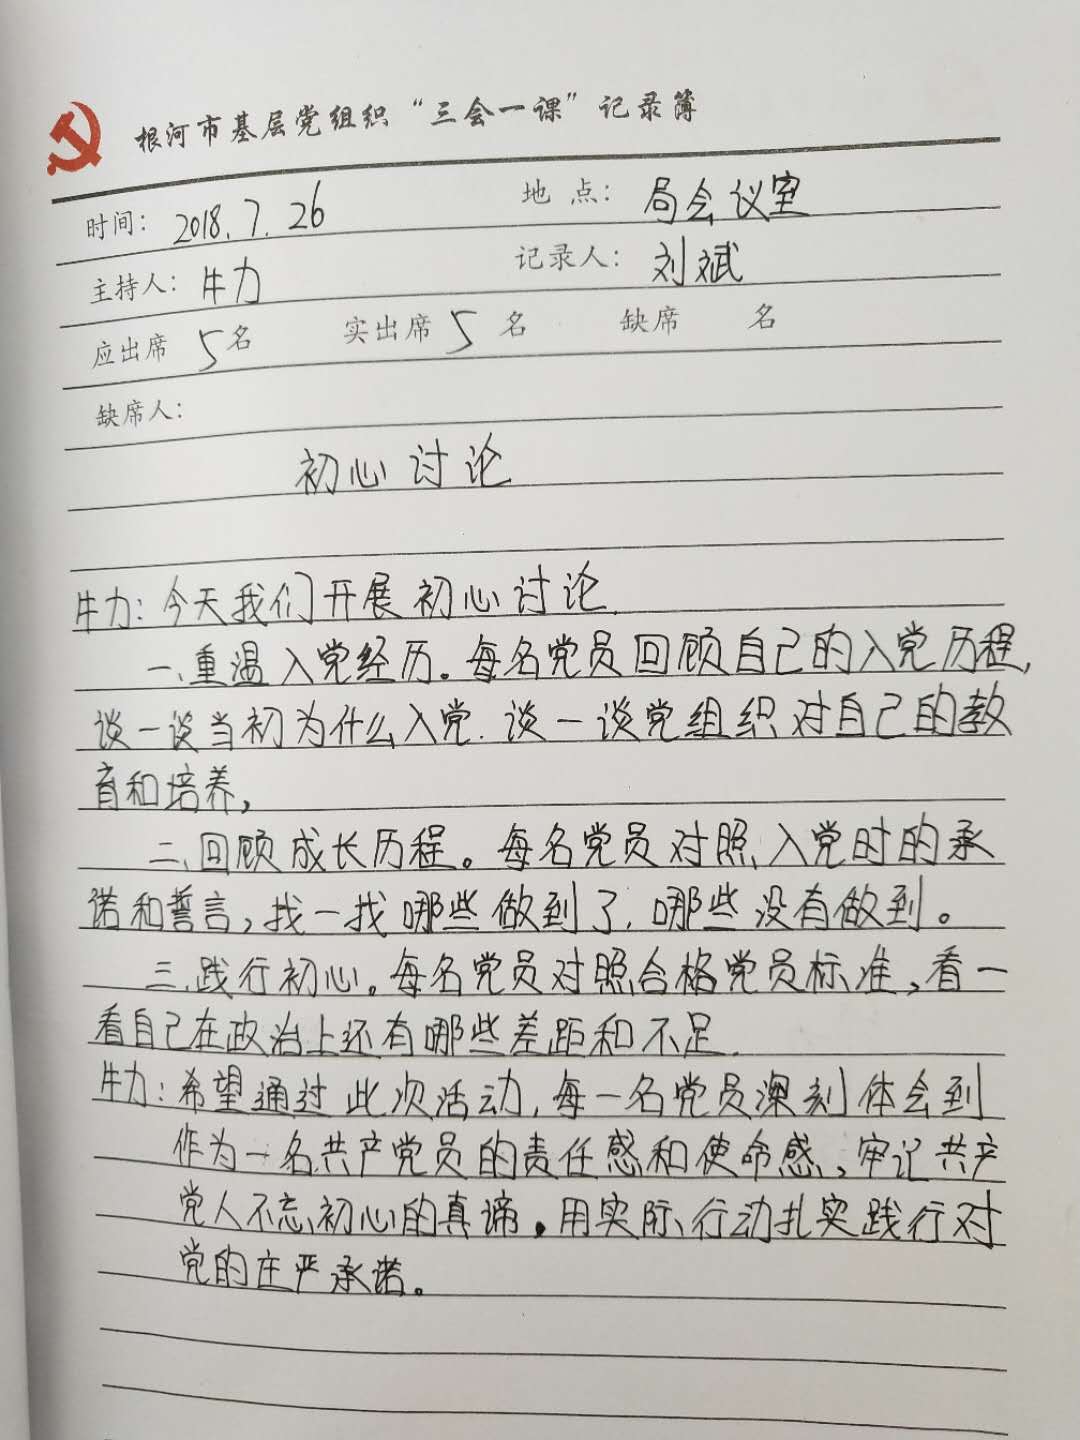 根河市基层党组织“三会一课”记录簿
时间：2018.7.26 地 点：局会议室
主持人：牛力 记录人：刘斌
应出席 5名 实出席 5 名 缺席 名
缺席人：
初心讨论
牛力：今天我们开展初心讨论.
一、重温入党经历。每名党员回顾自己的入党历程,
谈一谈当初为什么入党.谈一谈党组织对自己的教
育和培养,
二、回顾成长历程。每名党员对照入党时的承
诺和誓言,找一找哪些做到了,哪些没有做到。
三、践行初心。每名党员对照合格党员标准,看一
看自己在政治上还有哪些差距和不足.
牛力：希望通过此次活动,每一名党员深刻体会到
作为一名共产党员的责任感和使命感,牢记共产
党人不忘初心的真谛。用实际行动扎实践行对
党的庄严承诺。